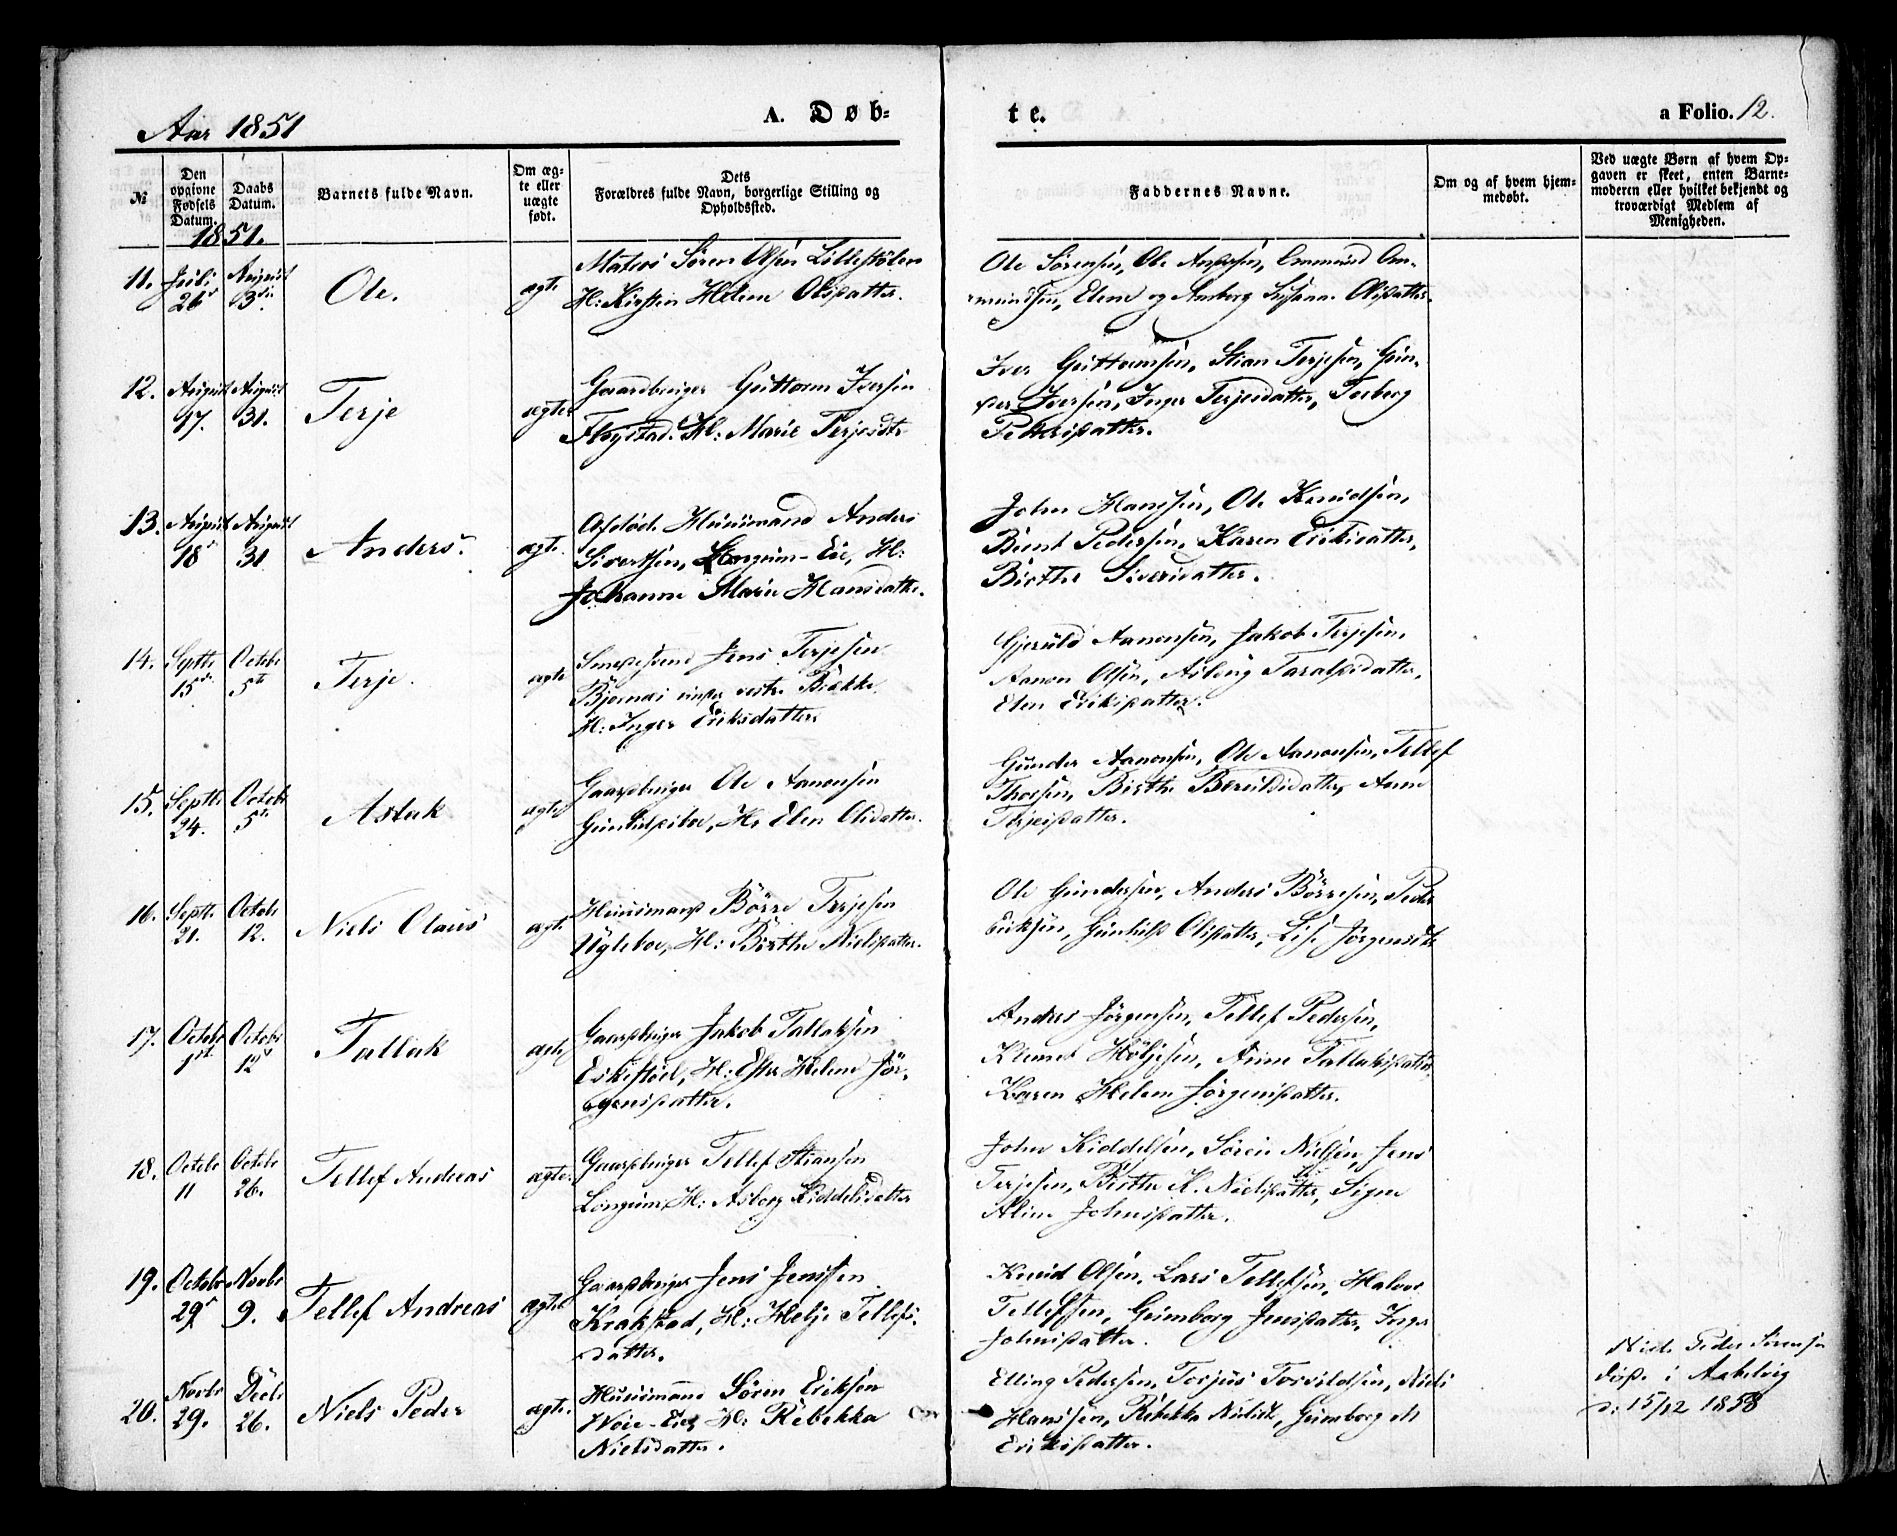 Aar 1851
A. Døb-
te.
a Folio. 12.
№
Den opgivne Fødsels Datum.
Daabs Datum.
Barnets fulde Navn.
Om ægte eller uægte født.
Dets Forældres fulde Navn, borgerlige Stilling og Opholdssted.
Faddernes Navne.
Om og af hvem hjemmedøbt.
Ved uægte Børn af hvem Opgaven er skeet, enten Barnemoderen eller hvilket bekjendt og troværdigt Medlem af Menigheden.
1851.
11. Juli 26 August 3die Ole. ægte
Søren Olsen
H: Kirsten Helene Olsdatter.
Ole Sørensen, Ole Andersen, Ommund Om-
mundsen, Elene og Susanne Olsdatter.
12. August 17. August 31. Terje ægte
Gaardbruger Guttorm Iversen
H: Marie Terjesdtr
Iver Guttormsen, Stian Terjesen, Gun-
der Iversen, Inger Terjesdatter, Torborg
Pettersdatter.
13. August 18 August 31 Anders. ægte.
Afdøde Huusmand Anders
Sivertsen, Longum-Eie, H:
Johanne Marie Hansdatter.
John Hanssen, Ole Knudsen,
Bernt Pedersen, Karen Eriksdatter,
Birthe Siversdatter.
14. Septbr 15de Octobr 5te Terje. ægte
Jens Terjesen
H: Inger Eriksdatter
Gjeruld Aanonsen, Jakob Terjesen,
Aanon Olsen, Taralsdatter,
Elen Eriksdatter.
15. Septbr 24. Octobr 5te Aslak ægte
Gaardbruger Ole Aanonsen
H: Elen Olsdatter.
Gunder Aanonsen, Ole Aanonsen, Tellef
Thorsen, Birthe Berulsdatter, Anne
Terjesdatter.
16. Septbr 21. Octobr 12. Niels Olaus ægte
Huusmand Börre Terjesen
Ugleboe, H: Birthe Nielsdatter.
Ole Gundersen, Anders Börresen, Peder
Eriksen, Gunhild Olsdatter, Lise Jörgensdtr
17. Octobr 1st Octobr 12 Tallak ægte
Gaardbruger Jakob Tallaksen
H: Helene Jör-
gensdatter.
Anders Jörgensen, Tellef Pedersen,
Klemet Höljesen, Anne Tallaksdatter
Karen Helene Jörgensdatter.
18. Octobr 11 Octobr 26. Tellef Andreas ægte.
Gaardbruger Tellef Stiansen
Longum, H: Asborg Kiddelsdatter
John Kiddelsen, Sören Nielsen, Jens
Terjesen, Birthe K. Nielsdatter, Signe
Aline Johnsdatter.
19. Octobr 29 Novbr 9. Tellef Andreas ægte
Gaardbruger Jens Jenssen
Krakstad, H: Helje Tellefs-
datter.
Knud Olsen, Lars Tellefsen, Halvor
Tellefsen, Gumborg Jensdatter, Inger
Johnsdatter.
20. Novbr 29. Decbr 26. Niels Peder ægte.
Huusmand Sören Eriksen
H: Rebekka
Nielsdatter.
Elling Pedersen, Torjus Torvildsen, Niels
Hanssen, Rebekka Nielsdtr, Gumborg M
Eriksdatter.
Niels Peder Sørensen
døde i
d: 15/12 1858